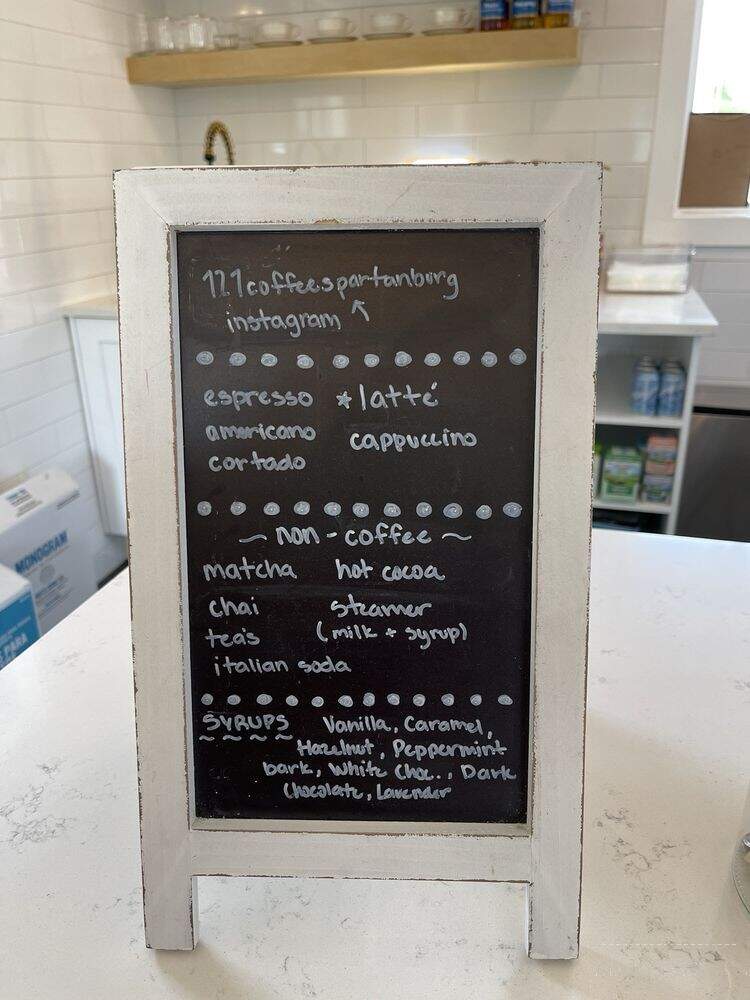 121coffeespartanburg
instagram ↖
espresso *latté
americano cappuccino
cortado
~ non-coffee ~
matcha hot cocoa
chai steamer
tea's (milk + syrup)
italian soda
SYRUPS Vanilla, Caramel,
Hazelnut, Peppermint
bark, White Choc., Dark
Chocolate, Lavender
MONOGRAM
PARA